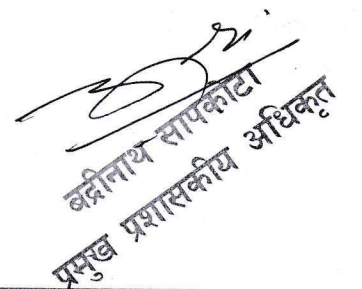 बद्रीनाथ सापकोटा
प्रमुख प्रशासकीय अधिकृत